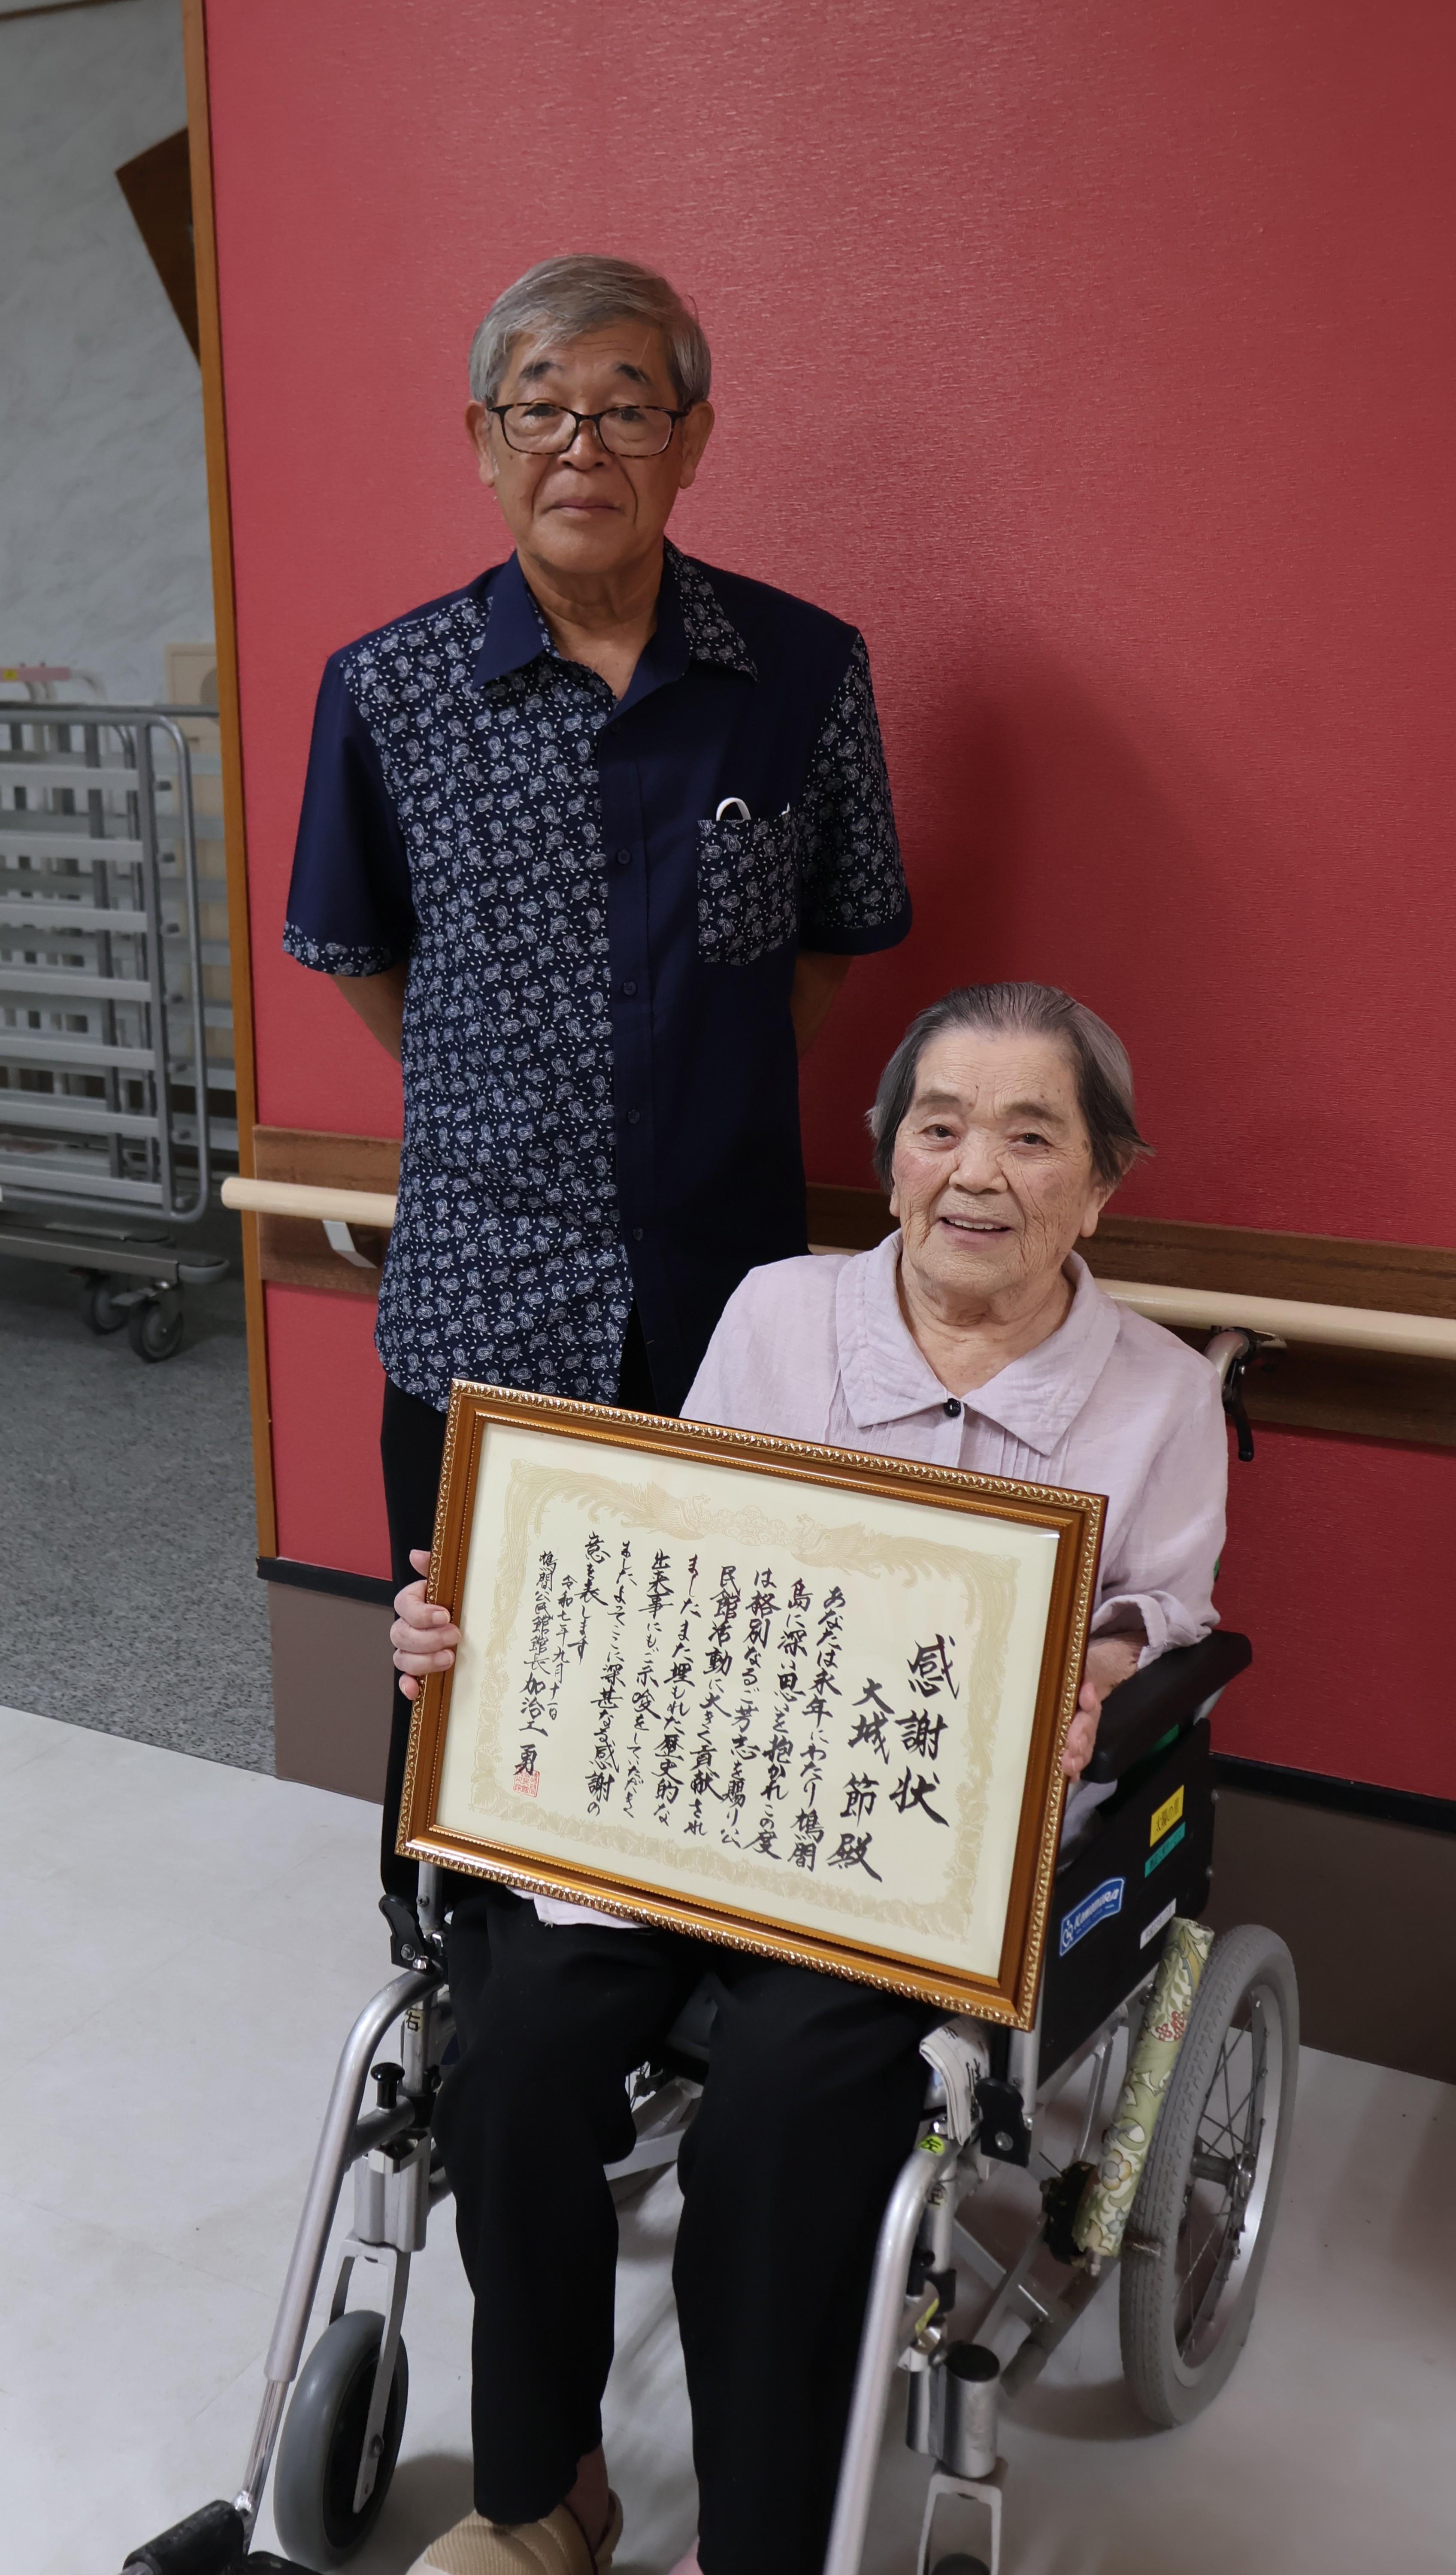 感謝状
大城 節 殿
あなたは永年にわたり鳩間
島に深い思いを抱かれこの度
は格別なるご芳志を賜り公
民館活動に大きく貢献され
ました また埋もれた歴史的な
出来事にもご示唆をしていただき
ました よってここに深甚なる感謝の
意を表します
令和七年九月十一日
鳩間公民館館長 加治工 勇
Kawamura
右
左